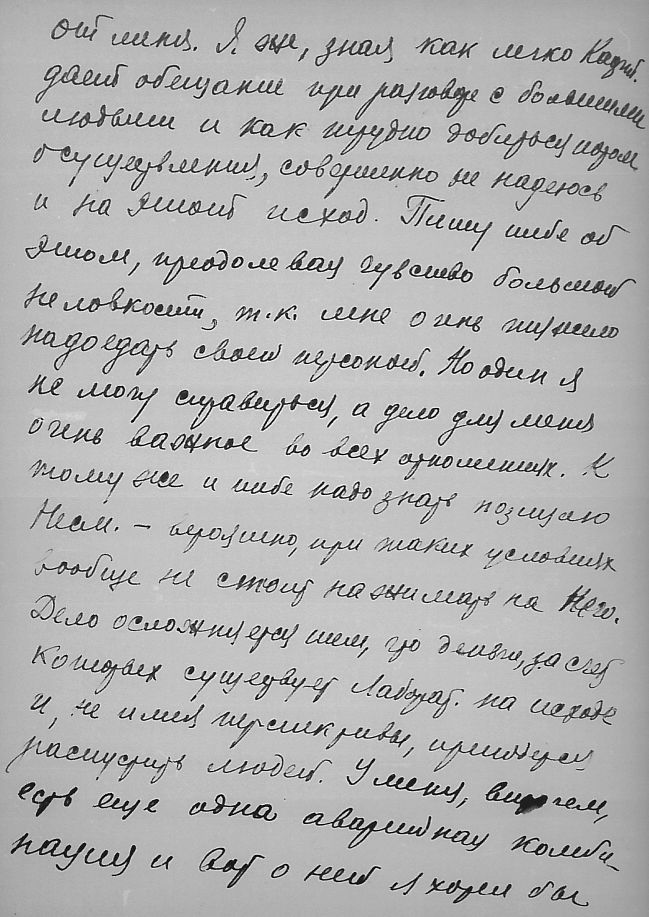 от меня. Я же, зная как легко
дает обещание при разговоре с большими
людьми и как трудно добиться потом
осуществления, совершенно не надеюсь
и на этот исход. Пишу тебе об
этом, преодолевая чувство большой
неловкости, т.к. мне очень тяжело
надоедать своей персоной. Но один я
не могу справиться, а дело для меня
очень важное во всех отношениях. К
тому же и тебе надо знать позицию
Несм. – вероятно, при таких условиях
вообще не стоит нажимать на Него.
Дело осложняется тем, что деньги, за счет
которых существует Лаборат. на исходе
и, не имея перспективы, придется
распустить людей. У меня, впрочем,
есть еще одна аварийная комби-
нация и вот о ней я хотел бы